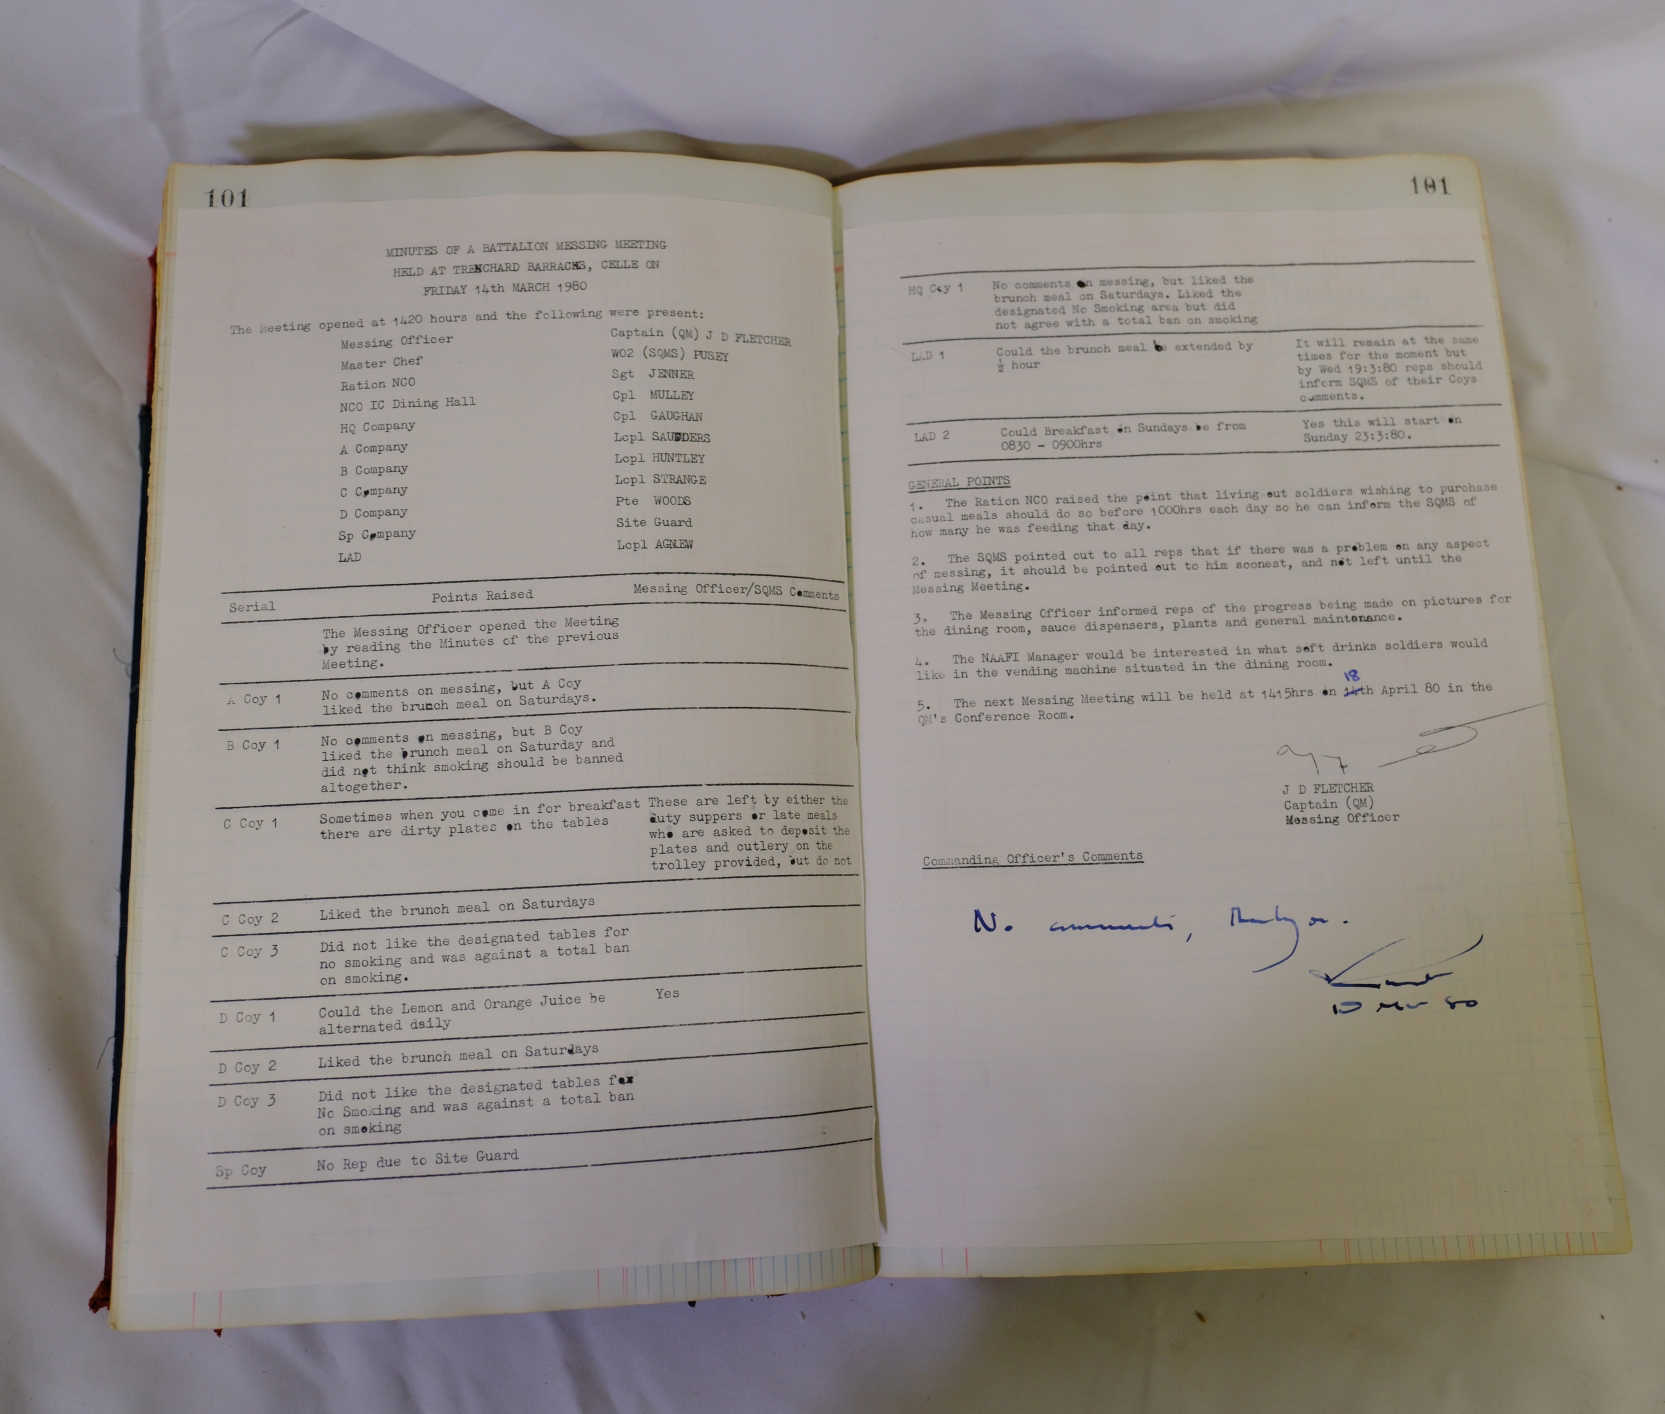 101
MINUTES OF A BATTALION MESSING MEETING
HELD AT TRENCHARD BARRACKS, CELLE ON
FRIDAY 14th MARCH 1980
The Meeting opened at 1420 hours and the following were present:
Messing Officer Captain (QM) J D FLETCHER
Master Chef WO2 (SQMS) PUSEY
Ration NCO Sgt JENNER
NCO IC Dining Hall Cpl MULLEY
HQ Company Cpl GAUGHAN
A Company Lcpl SAUNDERS
B Company Lcpl HUNTLEY
C Company Lcpl STRANGE
D Company Pte WOODS
Sp Company Site Guard
LAD Lcpl AGNEW
Serial Points Raised Messing Officer/SQMS Comments
The Messing Officer opened the Meeting
by reading the Minutes of the previous
Meeting.
A Coy 1 No comments on messing, but A Coy
liked the brunch meal on Saturdays.
B Coy 1 No comments on messing, but B Coy
liked the brunch meal on Saturday and
did not think smoking should be banned
altogether.
C Coy 1 Sometimes when you come in for breakfast These are left by either the
there are dirty plates on the tables duty suppers or late meals
who are asked to deposit the
plates and cutlery on the
trolley provided, but do not
C Coy 2 Liked the brunch meal on Saturdays
C Coy 3 Did not like the designated tables for
no smoking and was against a total ban
on smoking.
D Coy 1 Could the Lemon and Orange Juice be Yes
alternated daily
D Coy 2 Liked the brunch meal on Saturdays
D Coy 3 Did not like the designated tables for
No Smoking and was against a total ban
on smoking
Sp Coy No Rep due to Site Guard
101
HQ Coy 1 No comments on messing, but liked the
brunch meal on Saturdays. Liked the
designated No Smoking area but did
not agree with a total ban on smoking
LAD 1 Could the brunch meal be extended by It will remain at the same
½ hour times for the moment but
by Wed 19:3:80 reps should
inform SQMS of their Coys
comments.
LAD 2 Could Breakfast on Sundays be from Yes this will start on
0830 - 0900hrs Sunday 23:3:80.
GENERAL POINTS
1. The Ration NCO raised the point that living out soldiers wishing to purchase
casual meals should do so before 1000hrs each day so he can inform the SQMS of
how many he was feeding that day.
2. The SQMS pointed out to all reps that if there was a problem on any aspect
of messing, it should be pointed out to him soonest, and not left until the
Messing Meeting.
3. The Messing Officer informed reps of the progress being made on pictures for
the dining room, sauce dispensers, plants and general maintenance.
4. The NAAFI Manager would be interested in what soft drinks soldiers would
like in the vending machine situated in the dining room.
18
5. The next Messing Meeting will be held at 1415hrs on 14th April 80 in the
QM's Conference Room.
J D FLETCHER
Captain (QM)
Messing Officer
Commanding Officer's Comments
No comments, thank you.